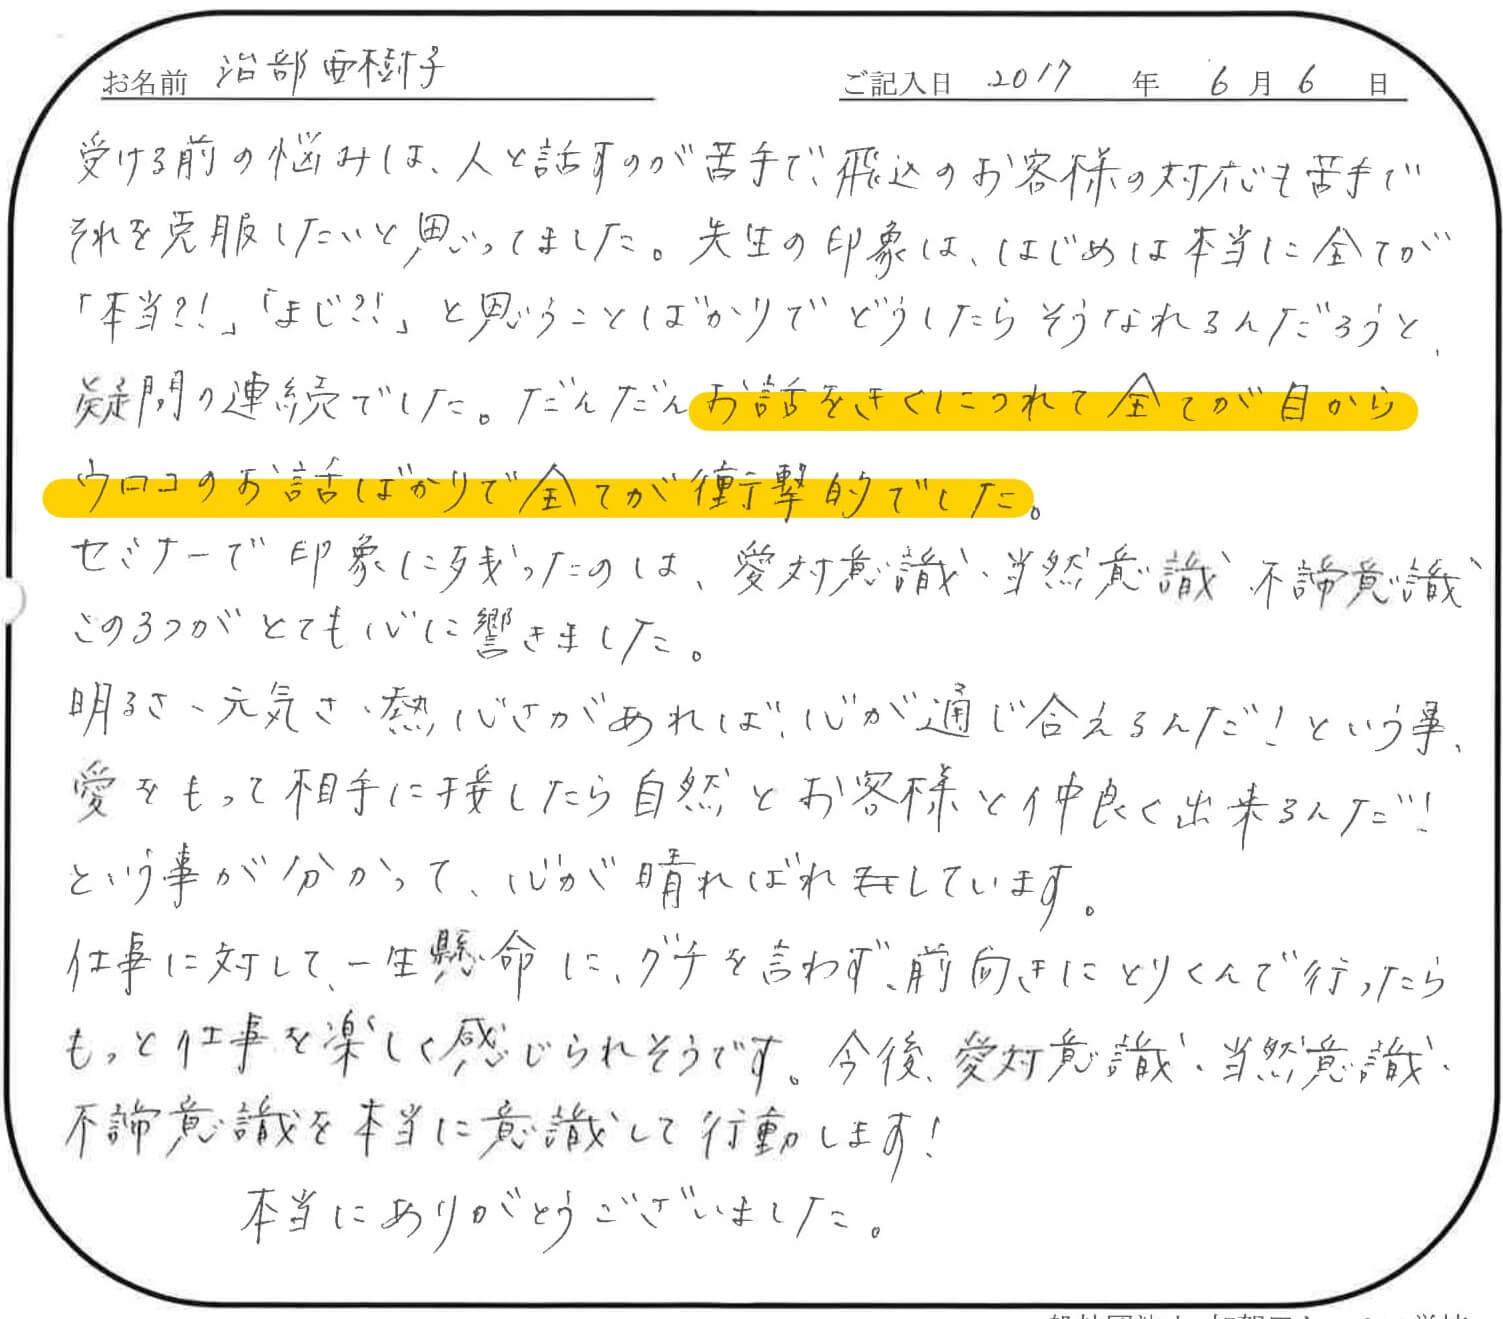 お名前 治部亜樹子 ご記入日 2017 年 6 月 6 日
受ける前の悩みは、人と話すのが苦手で、飛込のお客様の対応も苦手で
それを克服したいと思ってました。先生の印象は、はじめは本当に全てが
「本当?!」「まじ?!」と思うことばかりでどうしたらそうなれるんだろうと、
疑問の連続でした。だんだんお話をきくにつれて全てが目から
ウロコのお話ばかりで全てが衝撃的でした。
セミナーで印象に残ったのは、愛対意識、当然意識、不諦意識
この3つがとても心に響きました。
明るさ、元気さ、熱心さがあれば、心が通じ合えるんだ!という事、
愛をもって相手に接したら自然とお客様と仲良く出来るんだ!
という事が分かって、心が晴ればれしています。
仕事に対して、一生懸命に、グチを言わず、前向きにとりくんで行ったら
もっと仕事を楽しく感じられそうです。今後、愛対意識、当然意識、
不諦意識を本当に意識して行動します!
本当にありがとうございました。